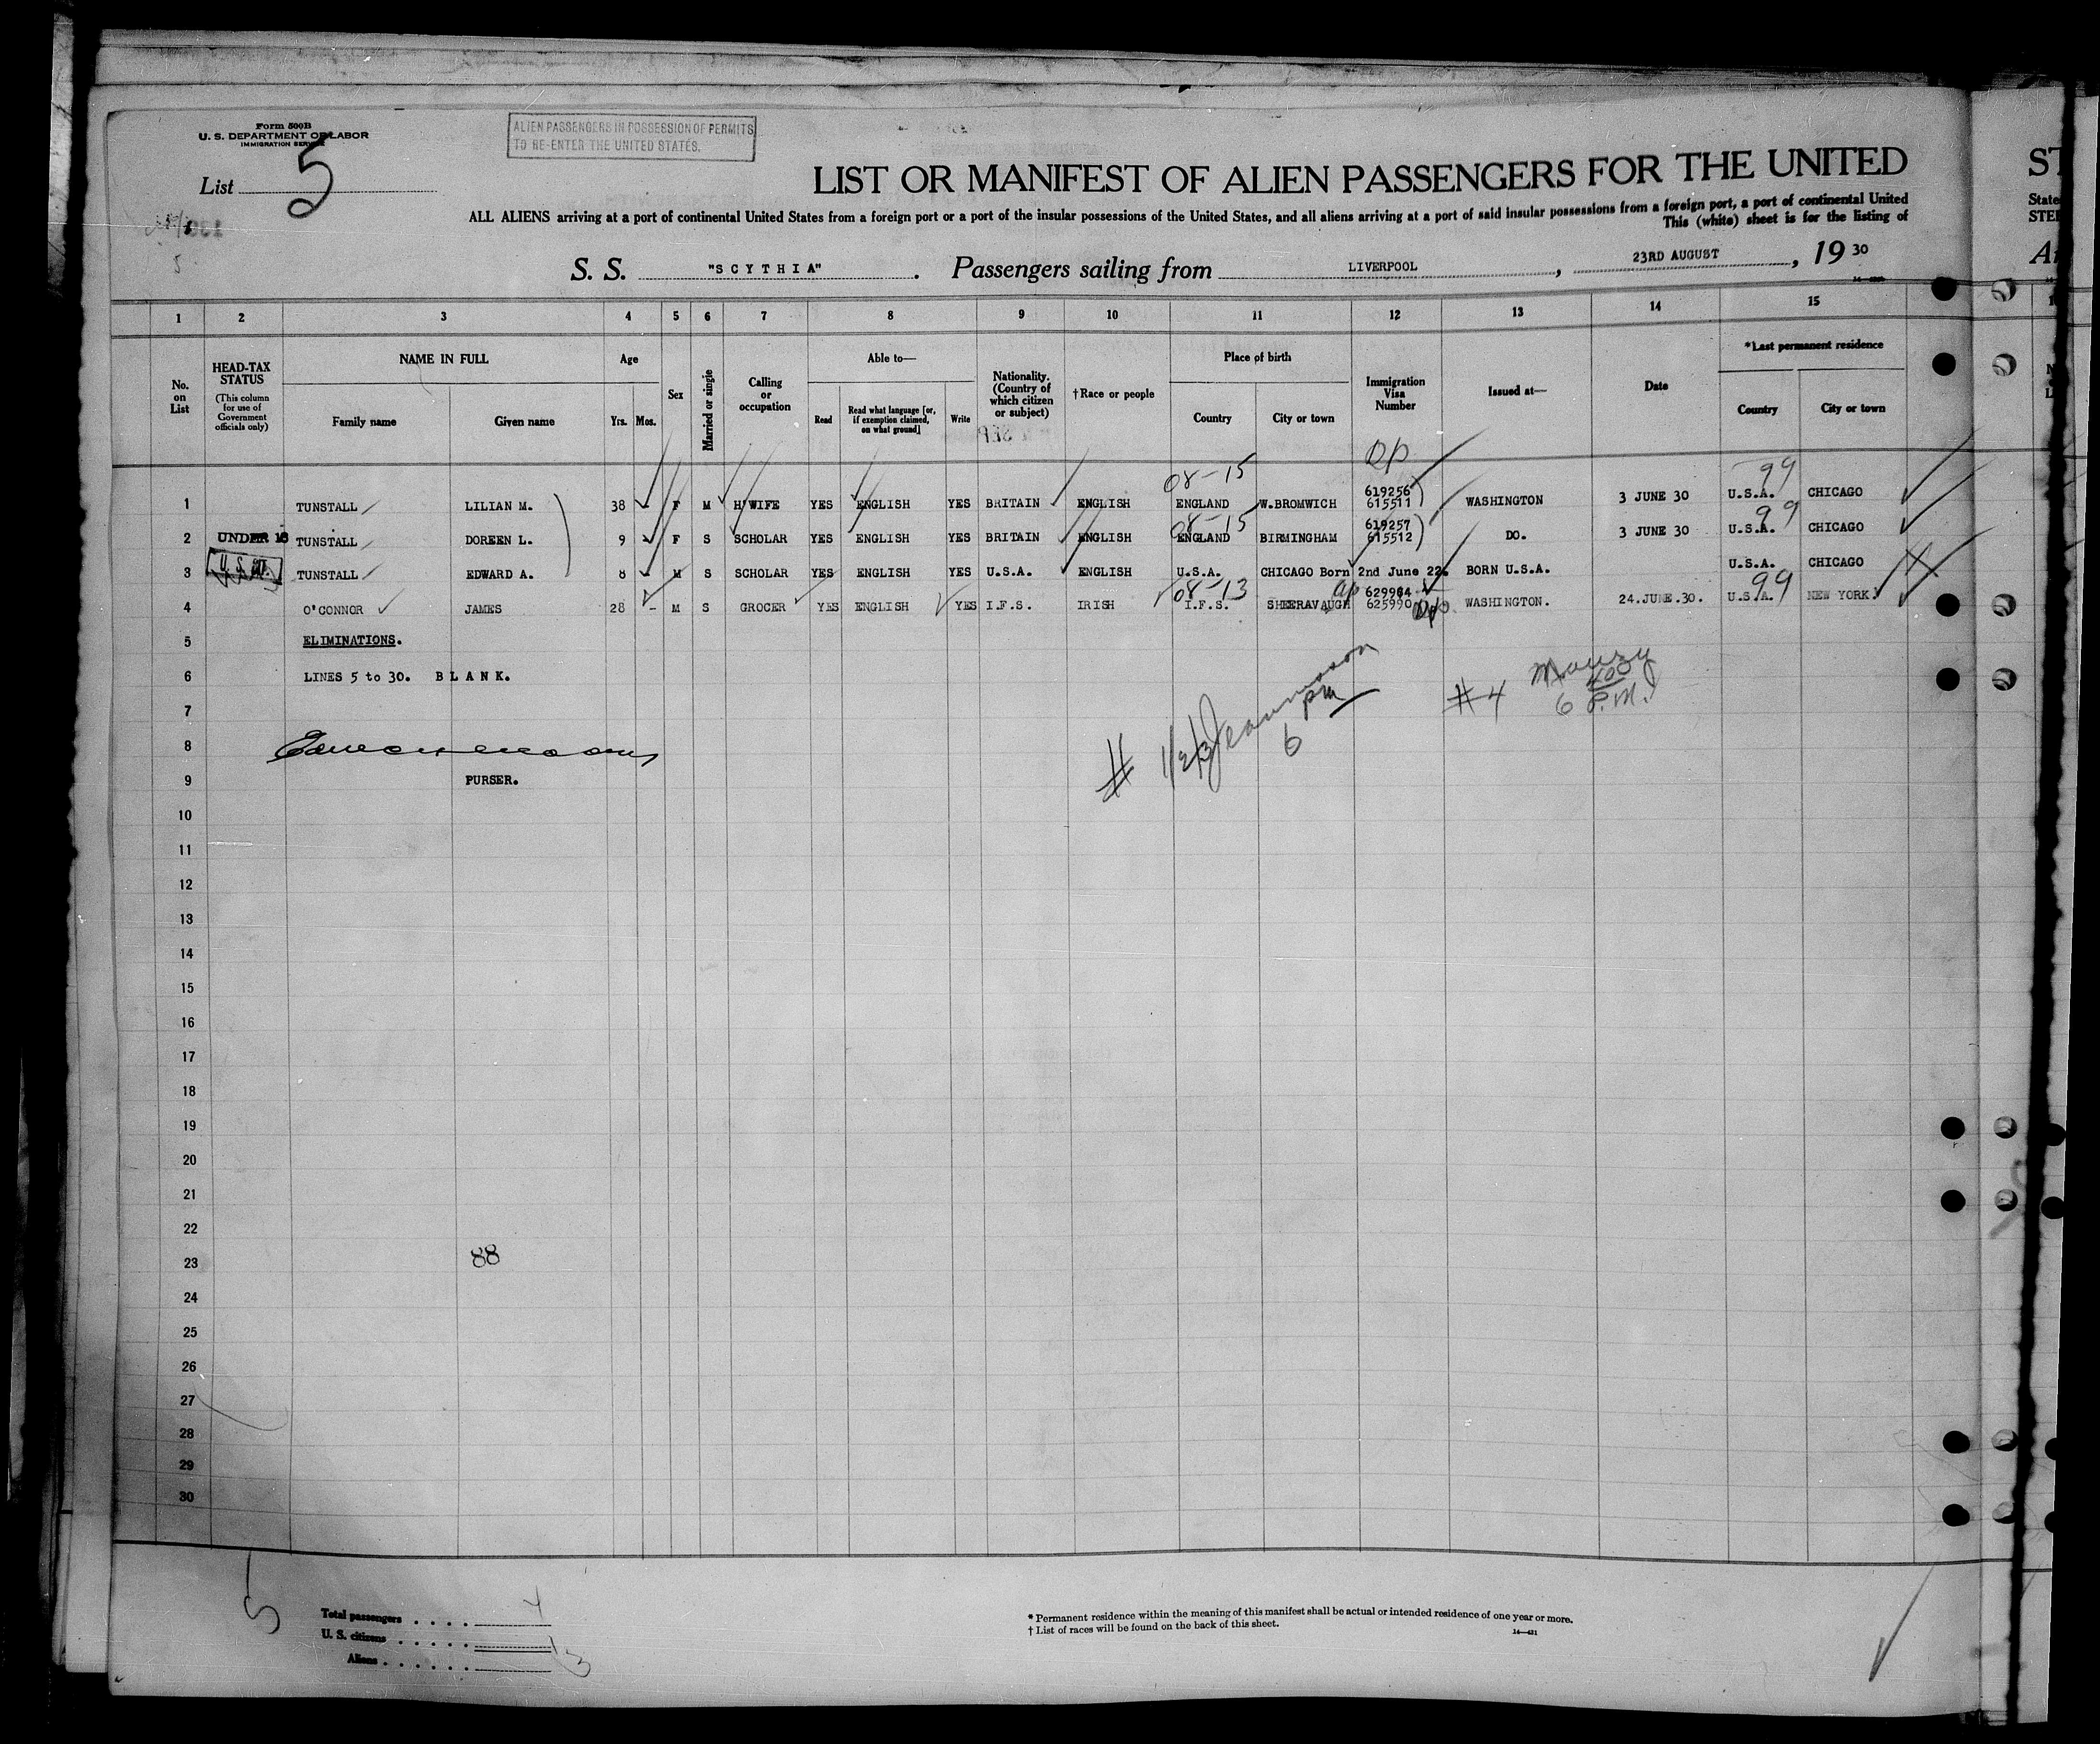 Form 500B
U. S. DEPARTMENT OF LABOR
IMMIGRATION SERVICE
ALIEN PASSENGERS IN POSSESSION OF PERMITS
TO RE-ENTER THE UNITED STATES.
List 5
LIST OR MANIFEST OF ALIEN PASSENGERS FOR THE UNITED
ST
ALL ALIENS arriving at a port of continental United States from a foreign port or a port of the insular possessions of the United States, and all aliens arriving at a port of said insular possessions from a foreign port, a port of continental United
State
This (white) sheet is for the listing of
STEE
S. S. "SCYTHIA". Passengers sailing from LIVERPOOL, 23RD AUGUST, 1930
1 2 3 4 5 6 7 8 9 10 11 12 13 14 15
No. on List
HEAD-TAX STATUS (This column for use of Government officials only)
NAME IN FULL
Family name Given name
Age
Yrs. Mos.
Sex
Married or single
Calling or occupation
Able to—
Read Read what language [or, if exemption claimed, on what ground] Write
Nationality. (Country of which citizen or subject)
†Race or people
Place of birth
Country City or town
Immigration Visa Number
Issued at—
Date
*Last permanent residence
Country City or town
08-15 99
1 TUNSTALL LILIAN M. 38 - F M H'WIFE YES ENGLISH YES BRITAIN ENGLISH ENGLAND W.BROMWICH 619256 615511 WASHINGTON 3 JUNE 30 U.S.A. CHICAGO
08-15 99
2 UNDER 16 TUNSTALL DOREEN L. 9 - F S SCHOLAR YES ENGLISH YES BRITAIN ENGLISH ENGLAND BIRMINGHAM 619257 615512 DO. 3 JUNE 30 U.S.A. CHICAGO
3 TUNSTALL EDWARD A. 8 - M S SCHOLAR YES ENGLISH YES U.S.A. ENGLISH U.S.A. CHICAGO Born 2nd June 22. BORN U.S.A. U.S.A. CHICAGO
08-13 99
4 O'CONNOR JAMES 28 - M S GROCER YES ENGLISH YES I.F.S. IRISH I.F.S. SHEERAVAUGH 629984 625990 WASHINGTON. 24.JUNE.30. U.S.A. NEW YORK
5 ELIMINATIONS.
6 LINES 5 to 30. BLANK.
7
#4
6 P.M.
8
9 PURSER.
# 1/2/3
6 pm
10
11
12
13
14
15
16
17
18
19
20
21
22
23 88
24
25
26
27
28
29
30
5
Total passengers 4
U. S. citizens 1
Aliens 3
* Permanent residence within the meaning of this manifest shall be actual or intended residence of one year or more.
† List of races will be found on the back of this sheet.